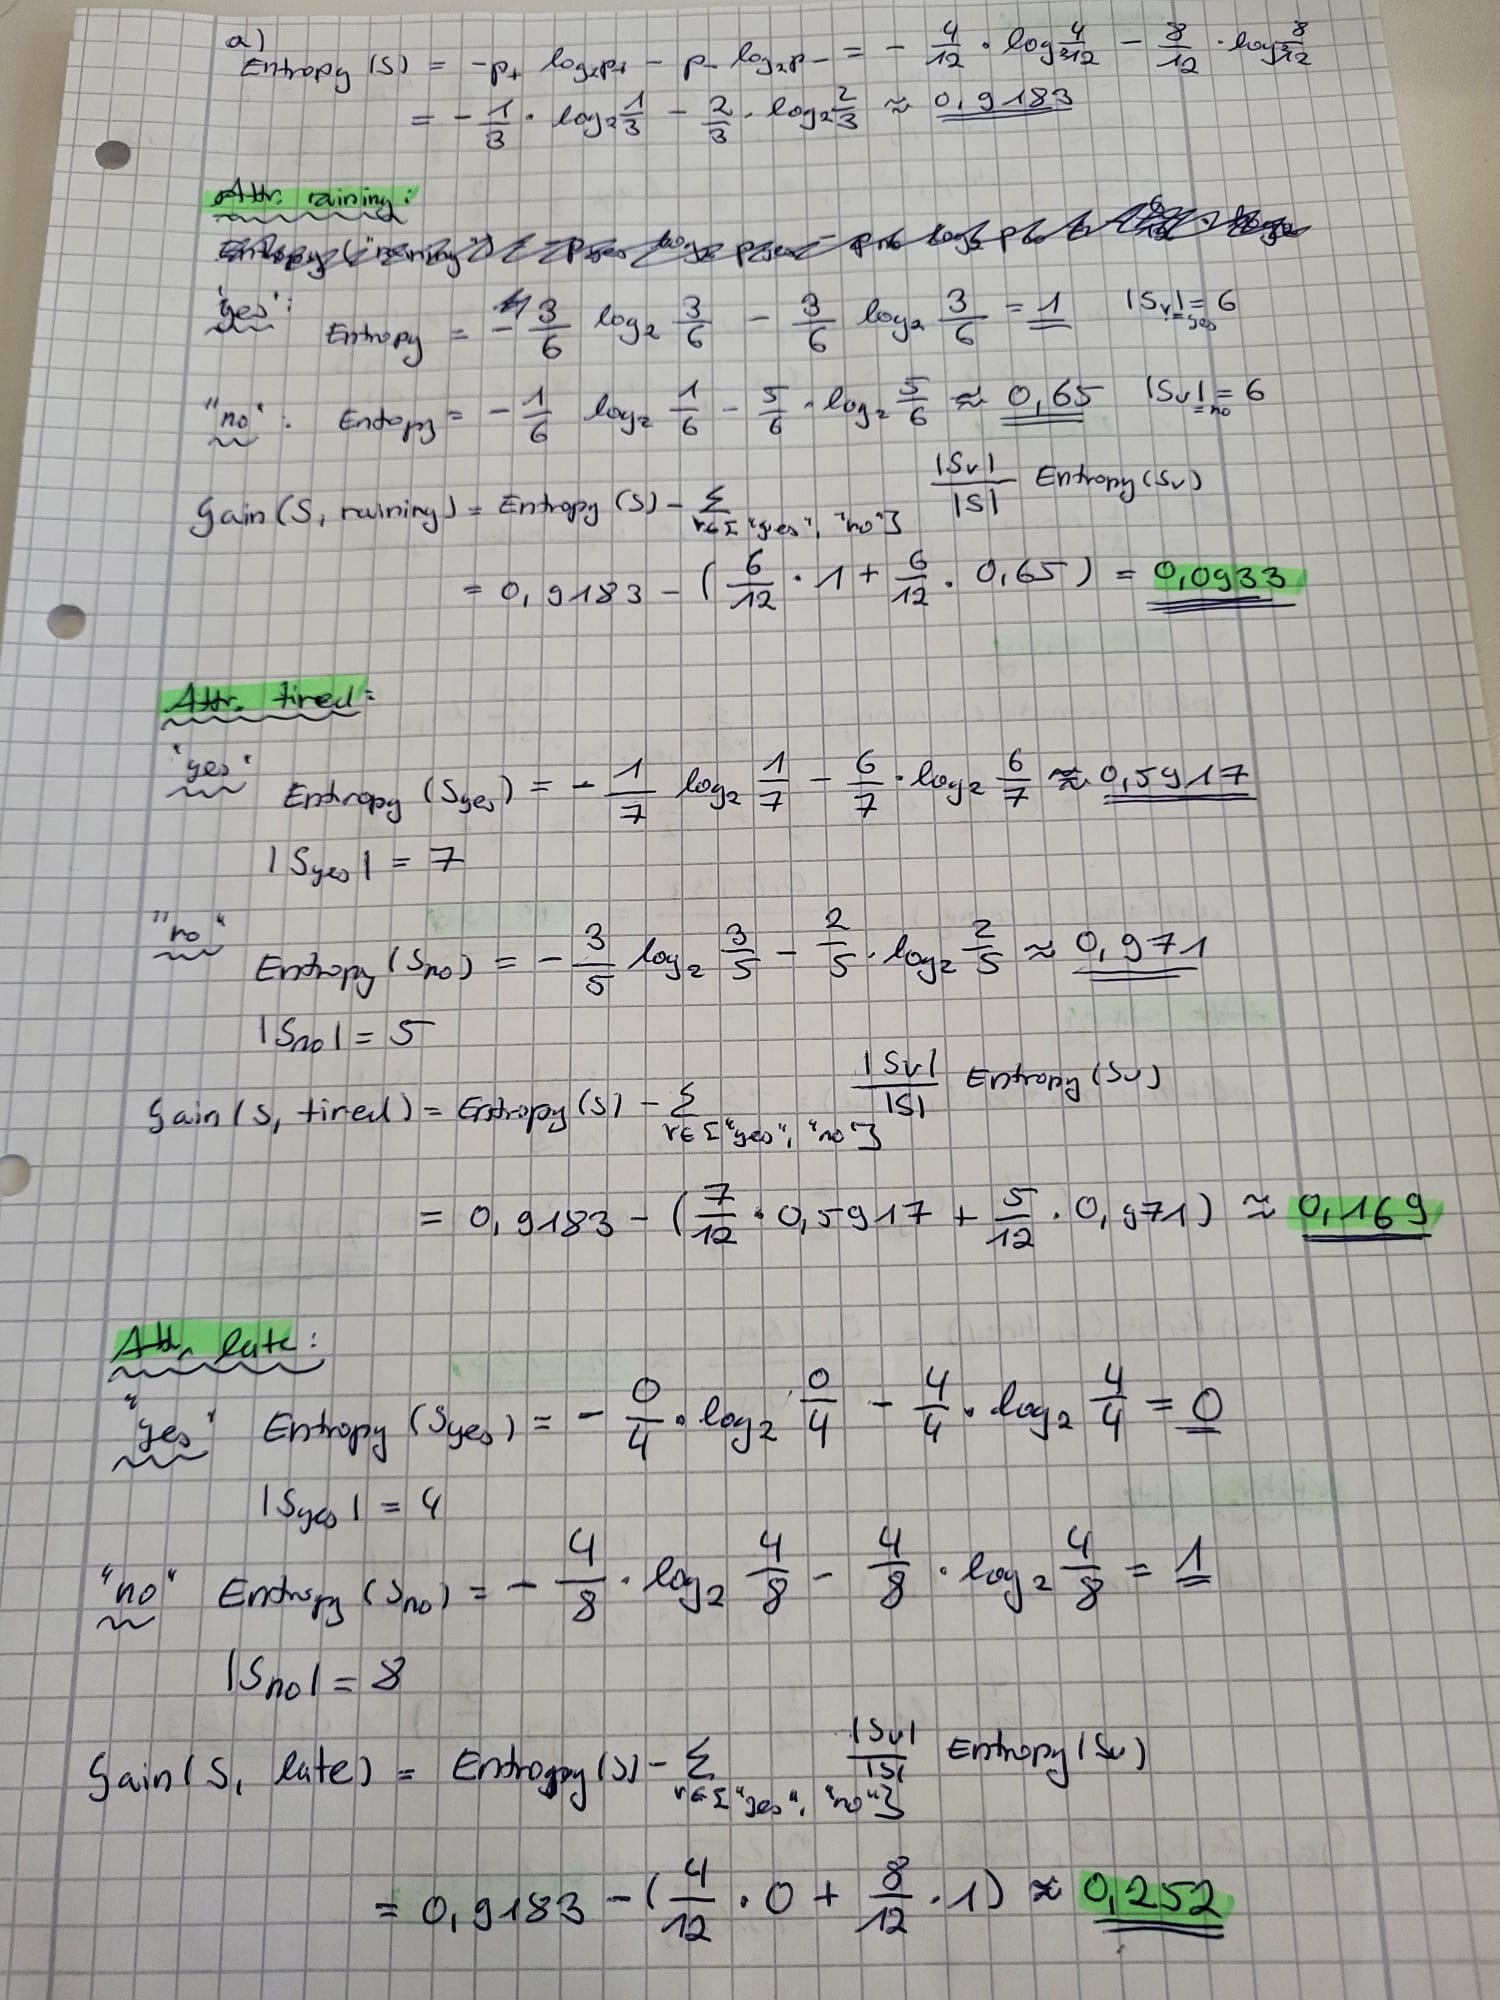 a)
Entropy (S) = -p₊ log₂p₊ - p₋ log₂p₋ = - 4/12 · log₂ 4/12 - 8/12 · log₂ 8/12
= - 1/3 · log₂ 1/3 - 2/3 · log₂ 2/3 ≈ 0,9183
Attr. raining:
"yes": Entropy = - 3/6 log₂ 3/6 - 3/6 log₂ 3/6 = 1 |Sv|=yes = 6
"no": Entopy = - 1/6 log₂ 1/6 - 5/6 · log₂ 5/6 ≈ 0,65 |Sv|=no = 6
Gain(S, raining) = Entropy (S) - Σ v∈{"yes", "no"} |Sv|/|S| Entropy (Sv)
= 0,9183 - (6/12 · 1 + 6/12 · 0,65) = 0,0933
Attr. tired:
"yes" Entropy (Syes) = - 1/7 log₂ 1/7 - 6/7 · log₂ 6/7 ≈ 0,5917
|Syes| = 7
"no" Entropy (Sno) = - 3/5 log₂ 3/5 - 2/5 · log₂ 2/5 ≈ 0,971
|Sno| = 5
Gain(S, tired) = Entropy (S) - Σ v∈{"yes", "no"} |Sv|/|S| Entropy (Sv)
= 0,9183 - (7/12 · 0,5917 + 5/12 · 0,971) ≈ 0,169
Attr. late:
"yes" Entropy (Syes) = - 0/4 · log₂ 0/4 - 4/4 · log₂ 4/4 = 0
|Syes| = 4
"no" Entropy (Sno) = - 4/8 · log₂ 4/8 - 4/8 · log₂ 4/8 = 1
|Sno| = 8
Gain(S, late) = Entropy (S) - Σ v∈{"yes", "no"} |Sv|/|S| Entropy (Sv)
= 0,9183 - (4/12 · 0 + 8/12 · 1) ≈ 0,252